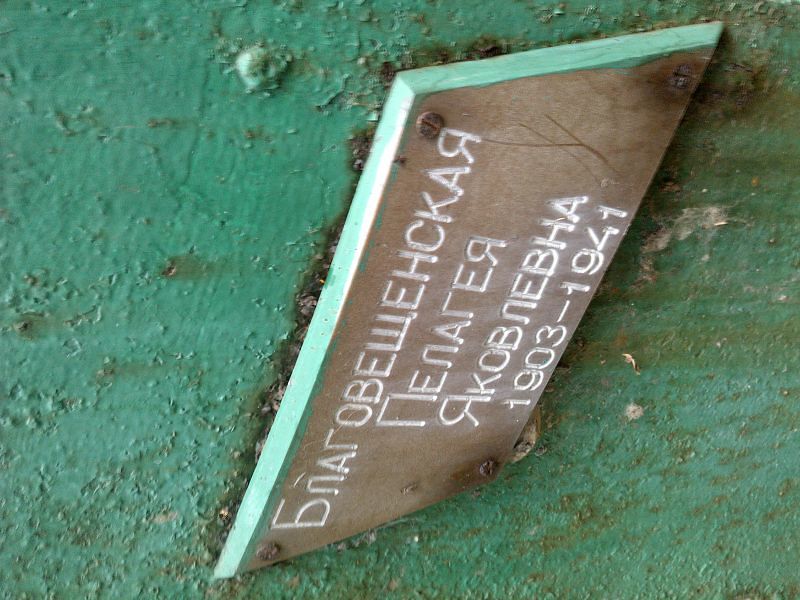 БЛАГОВЕЩЕНСКАЯ
ПЕЛАГЕЯ
ЯКОВЛЕВНА
1903-1941